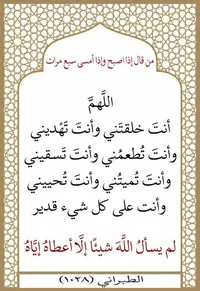 من قال إذا اصبح وإذا أمسى سبع مرات
اللَّهمَّ
أنتَ خلقتَني وأنتَ تَهْديني
وأنتَ تُطعمُني وأنتَ تَسقيني
وأنتَ تُميتُني وأنتَ تُحييني
وأنت على كل شيء قدير
لم يسألُ اللَّهَ شيئًا إلَّا أعطاهُ إيَّاهُ
الطبراني (١٠٢٨)